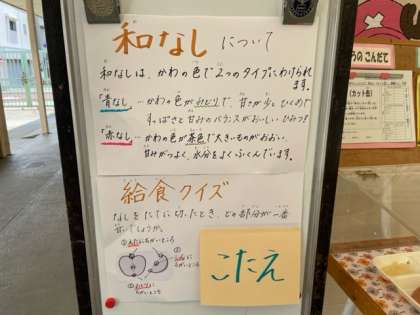 和なしについて
和なしは、かわの色で2つのタイプにわけられ
ます。
「青なし」…かわの色がみどりで、甘さが少しひくめで
すっぱさと甘みのバランスがおいしいひみつ!
「赤なし」…かわの色が茶色で大きいものがおおい。
甘みがつよく、水分をよくふくんでいます。
給食クイズ
なしをたてに切ったとき、どの部分が一番
甘いでしょうか。
①
ちかいところ
②
ちかいところ
③
ちかいところ
こたえ
うのこんだて
(カット缶)